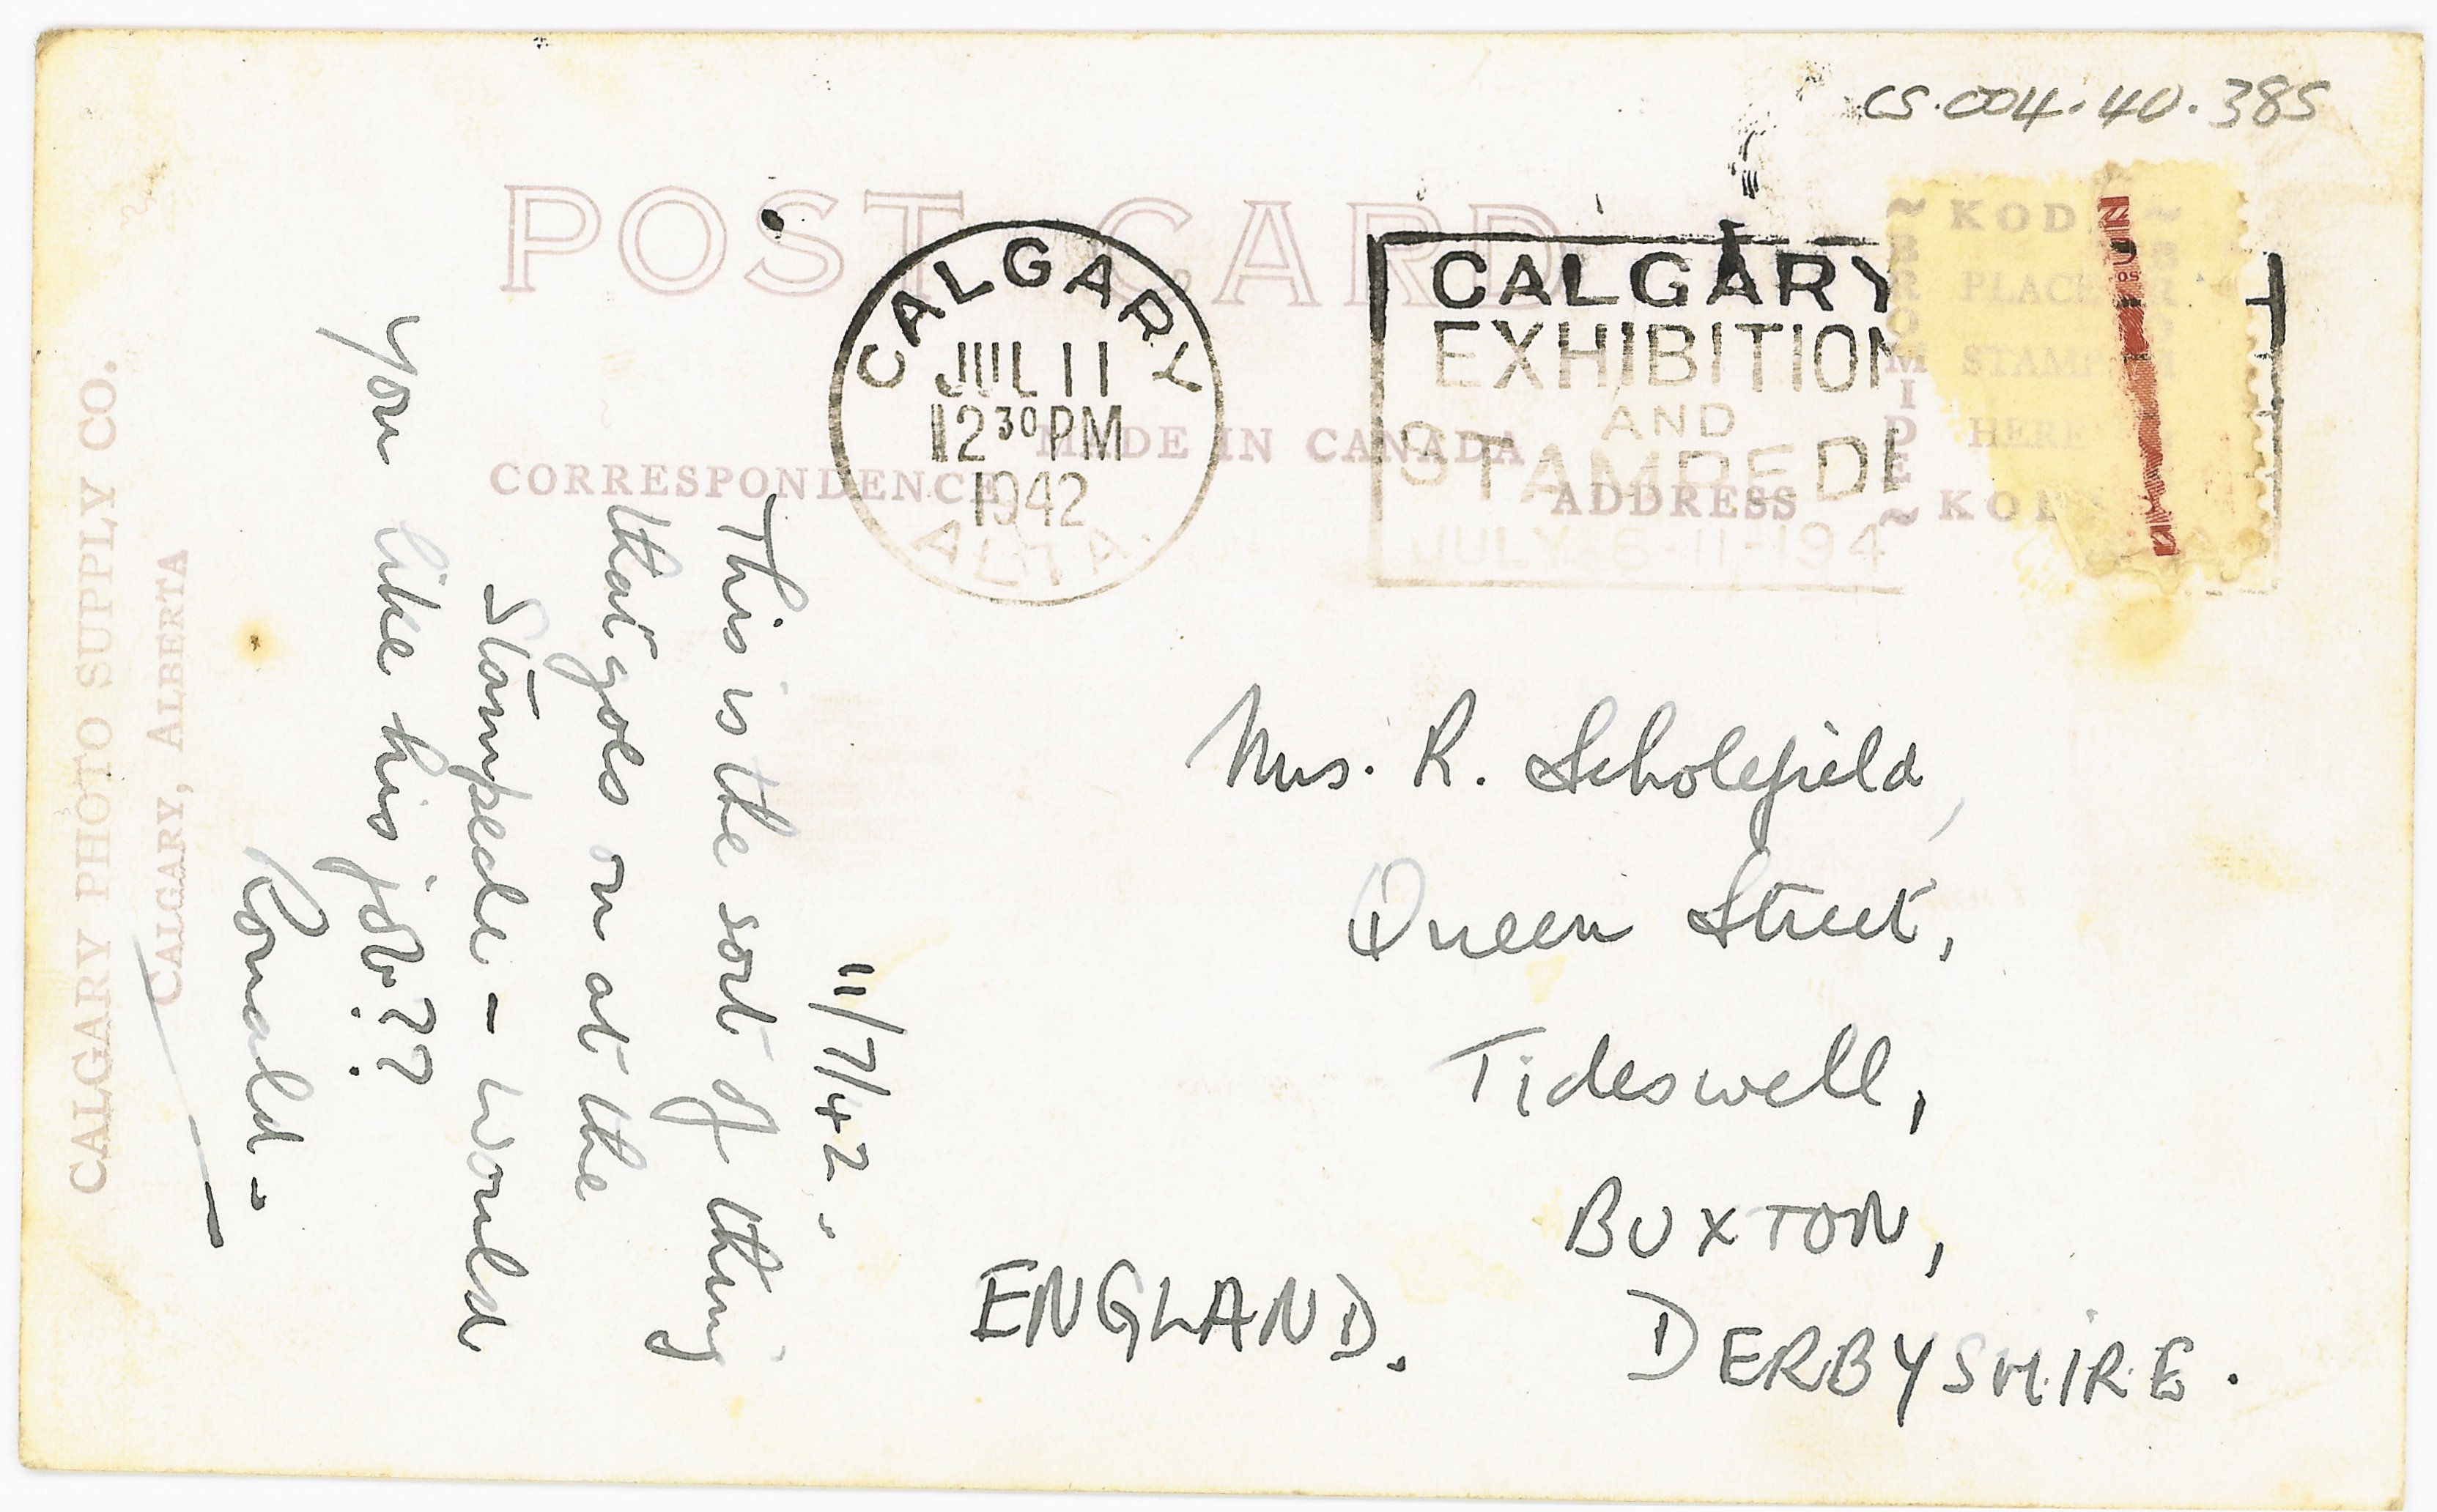 CS.004.40.385
POST CARD
CALGARY
JUL 11
12 30 PM
1942
ALTA.
CALGARY
EXHIBITION
AND
STAMPEDE
JULY-6-11-194
KOD
BROMIDE
PLACE
STAMP
HERE
KOD
MADE IN CANADA
CORRESPONDENCE
ADDRESS
11/7/42.
This is the sort of thing
that goes on at the
Stampede - would
you like his job??
Ronald -
Mrs. R. Scholefield,
Queen Street,
Tideswell,
BUXTON,
DERBYSHIRE.
ENGLAND.
CALGARY, ALBERTA
CALGARY PHOTO SUPPLY CO.